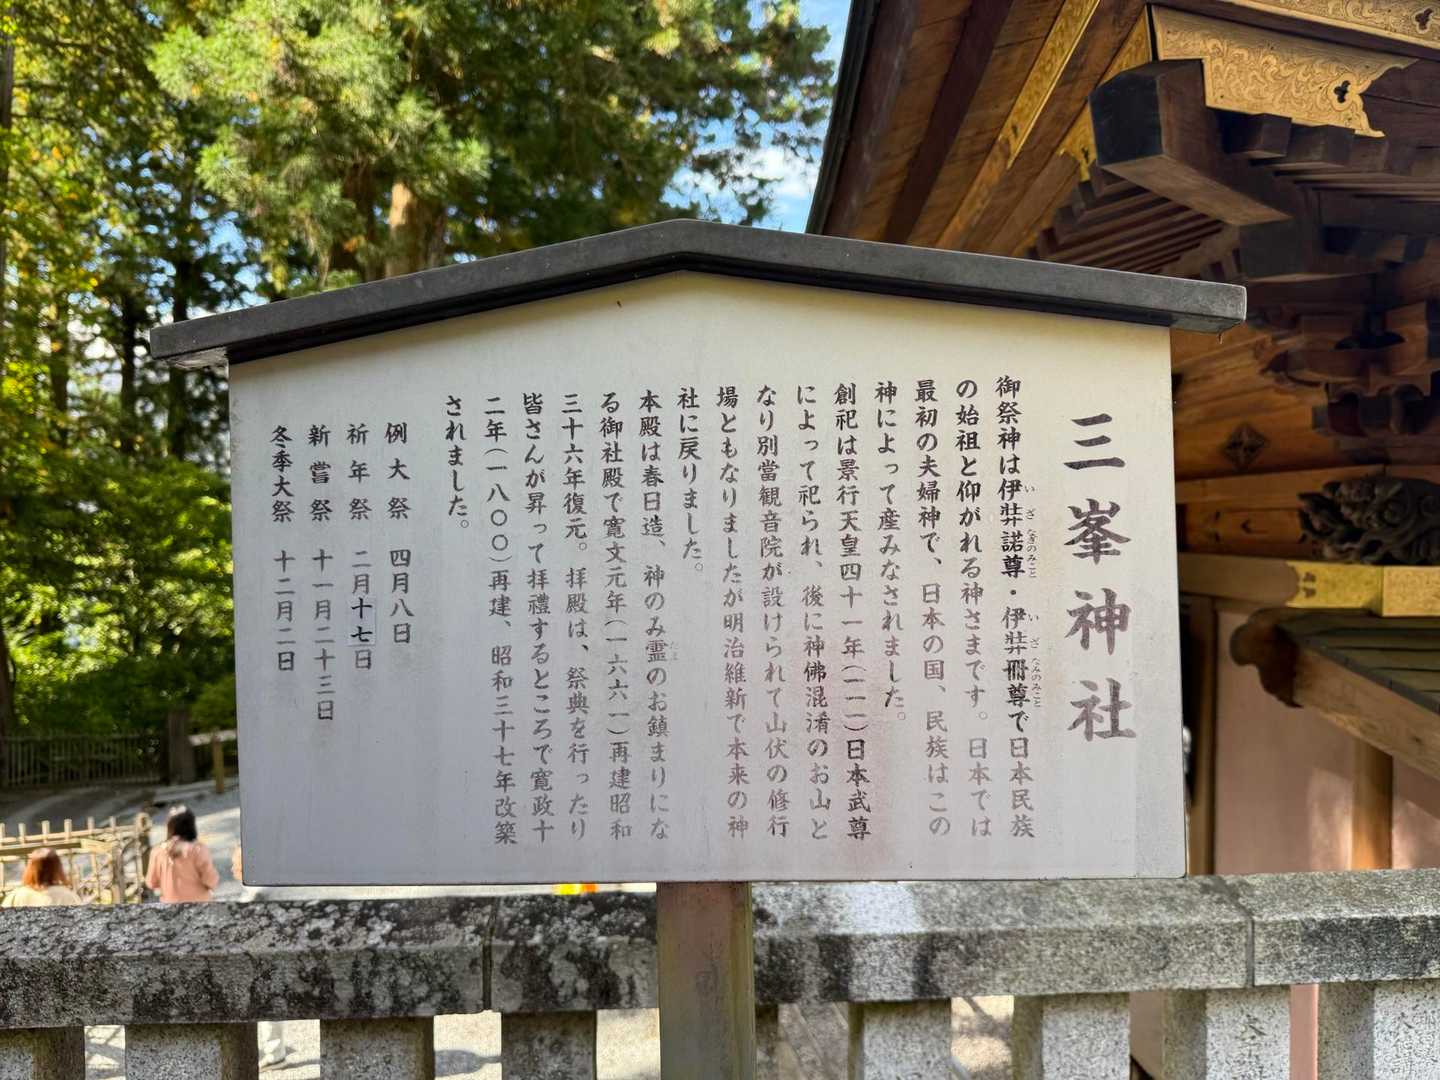 三峯神社
御祭神は伊弉諾尊・伊弉冊尊で日本民族
の始祖と仰がれる神さまです。日本では
最初の夫婦神で、日本の国、民族はこの
神によって産みなされました。
創祀は景行天皇四十一年(一一一)日本武尊
によって祀られ、後に神佛混淆のお山と
なり別當観音院が設けられて山伏の修行
場ともなりましたが明治維新で本来の神
社に戻りました。
本殿は春日造、神のみ霊のお鎮まりにな
る御社殿で寛文元年(一六六一)再建昭和
三十六年復元。拝殿は、祭典を行ったり
皆さんが昇って拝禮するところで寛政十
二年(一八〇〇)再建、昭和三十七年改築
されました。
例大祭 四月八日
祈年祭 二月十七日
新嘗祭 十一月二十三日
冬季大祭 十二月二日